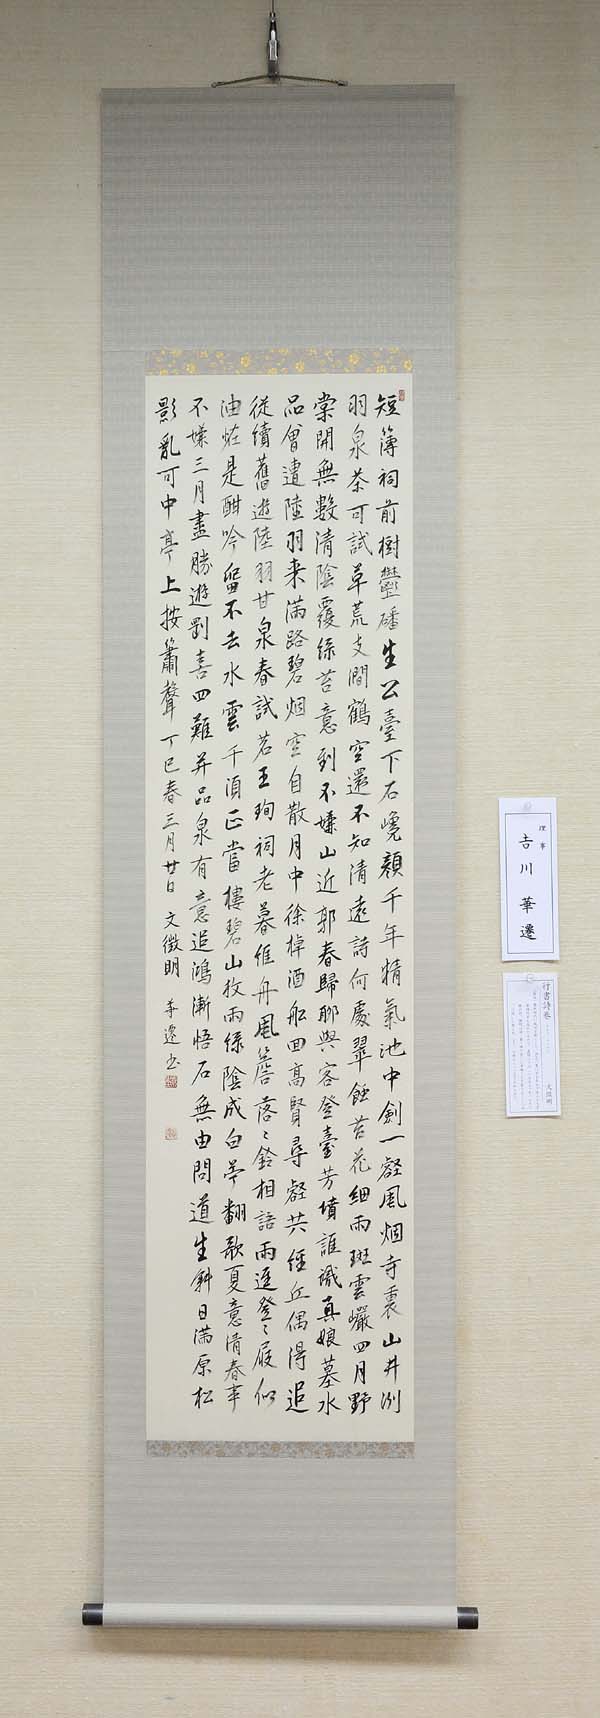 短簿祠前樹鬱磻生公臺下石巉顏千年精氣池中劍一壑風烟寺裏山井洌
羽泉茶可試草荒支澗鶴空還不知清遠詩何處翠蝕苔花細雨斑雲巖四月野
棠開無數清陰覆綠苔意到不嫌山近郭春歸聊與客登臺芳墳誰識真娘墓水
品曾遭陸羽来滿路碧烟空自散月中徐棹酒舩回高賢尋壑共經丘偶得追
從續舊遊陸羽甘泉春試茗王珣祠老暮維舟風簷落〻鈴相語雨逕登〻屐似
油婭是酣吟留不去水雲千頃正當樓碧山收雨綠陰成白苧翻歌夏意清春事
不嫌三月盡勝遊剛喜四難并品泉有意追鴻漸悟石無由問道生斜日滿原松
影亂可中亭上按簫聲 丁巳春三月廿日 文徵明 華邊書
理事
吉川 華邊
行書詩巻
文徴明